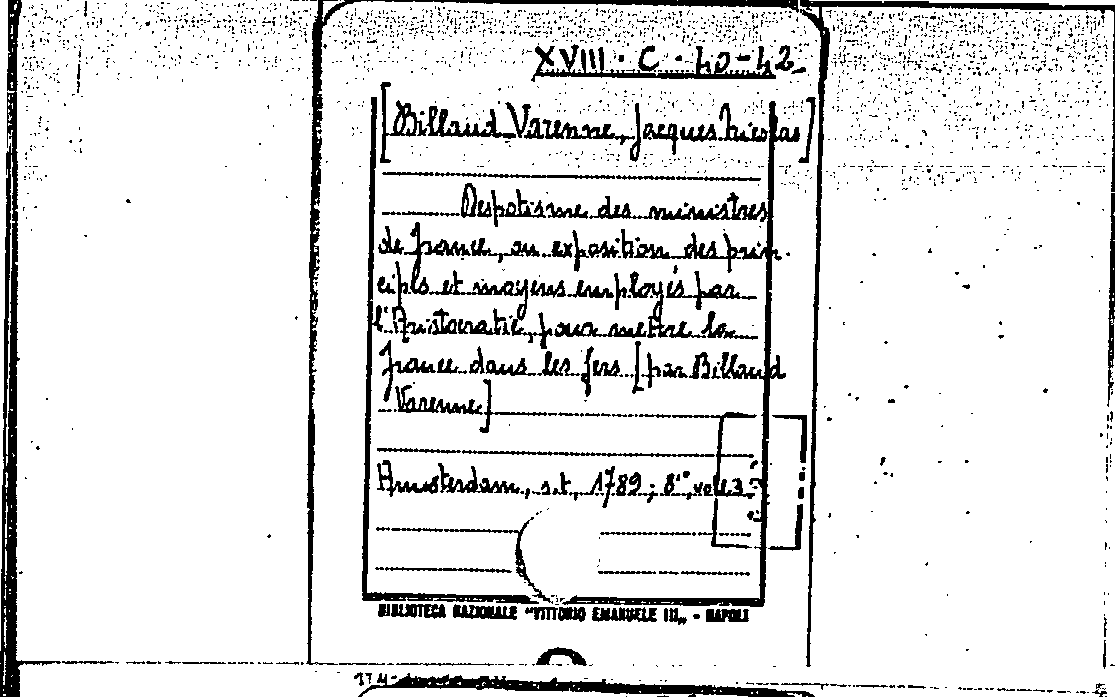 XVIII · C · 40-42
[Billaud Varenne, Jacques Nicolas]
Despotisme des ministres
de france, ou exposition des prin-
cipls et moyens employés par
l'Aristocratie, pour mettre la
france dans les fers [par Billaud
Varenne]
Amsterdam, s.t., 1789; 8°, voll. 3
BIBLIOTECA NAZIONALE "VITTORIO EMANUELE III„ - NAPOLI